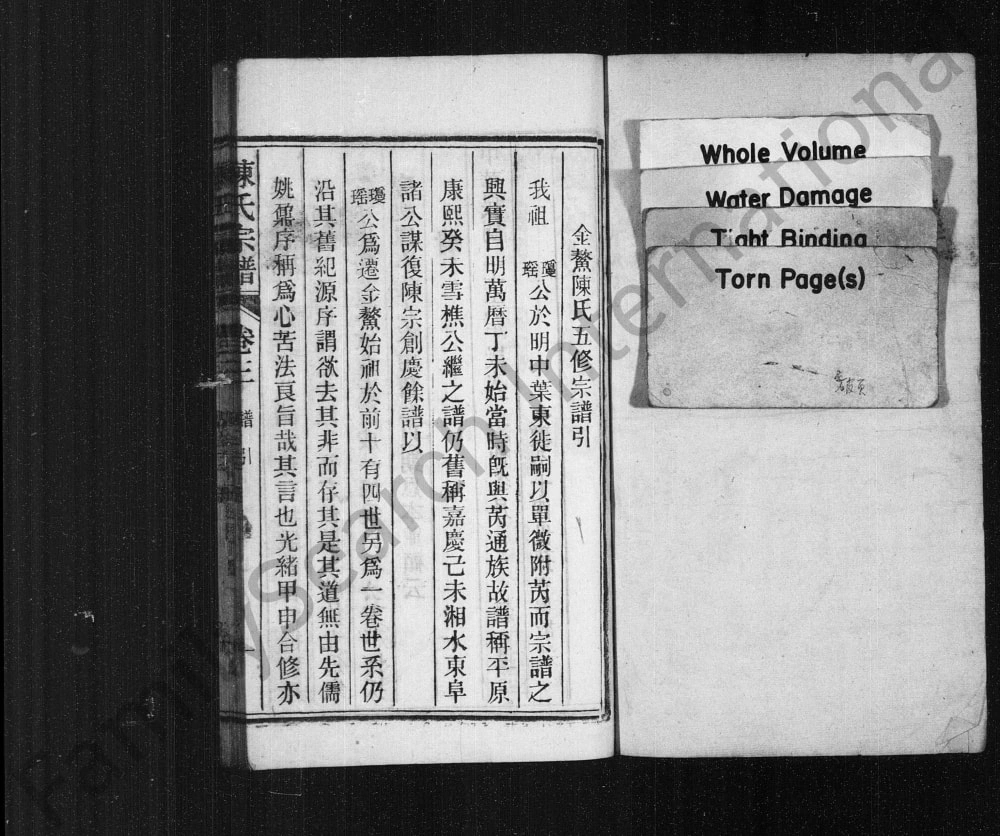 Whole Volume
Water Damage
Tight Binding
Torn Page(s)
金鰲陳氏五修宗譜引
我祖瓊瑤公於明中葉東徙嗣以單微附芮而宗譜之
興實自明萬曆丁未始當時旣與芮通族故譜稱平原
康熙癸未雪樵公繼之譜仍舊稱嘉慶己未湘水東阜
諸公謀復陳宗創慶餘譜以
瓊瑤公爲遷金鰲始祖於前十有四世另爲一卷世系仍
沿其舊紀源序謂欲去其非而存其是其道無由先儒
姚鼐序稱爲心苦法良旨哉其言也光緒甲申合修亦
陳氏宗譜
卷三
譜引
FamilySearch International